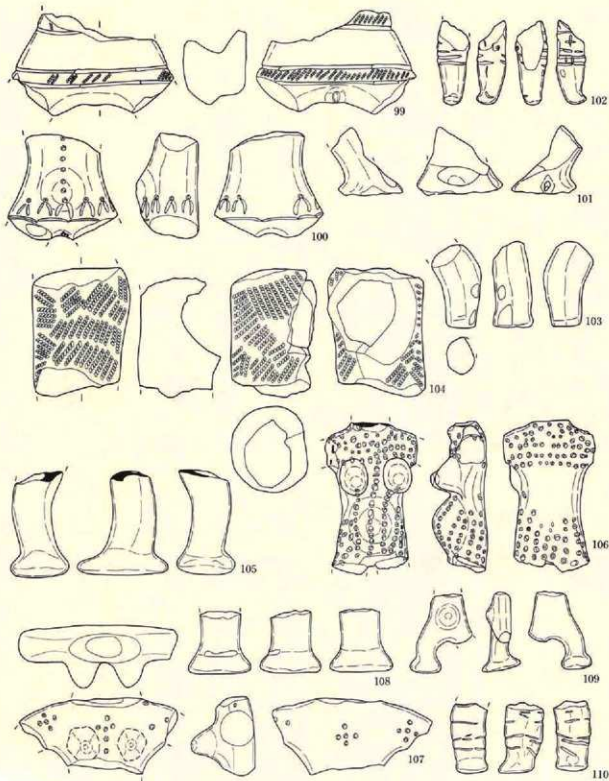 99
102
100
101
103
104
105
106
108
109
107
110